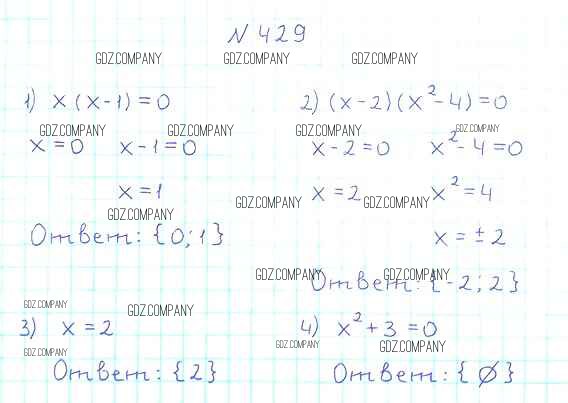 N 429
GDZ.COMPANY GDZ.COMPANY GDZ.COMPANY
1) x (x - 1) = 0
2) (x - 2) (x² - 4) = 0
GDZ.COMPANY GDZ.COMPANY GDZ.COMPANY GDZ.COMPANY
x = 0 x - 1 = 0
x - 2 = 0 x² - 4 = 0
x = 1
x = 2 x² = 4
GDZ.COMPANY GDZ.COMPANY GDZ.COMPANY
Ответ: {0; 1}
x = ± 2
GDZ.COMPANY GDZ.COMPANY
Ответ: {-2; 2}
GDZ.COMPANY GDZ.COMPANY
3) x = 2
4) x² + 3 = 0
GDZ.COMPANY GDZ.COMPANY GDZ.COMPANY
Ответ: {2}
Ответ: {∅}